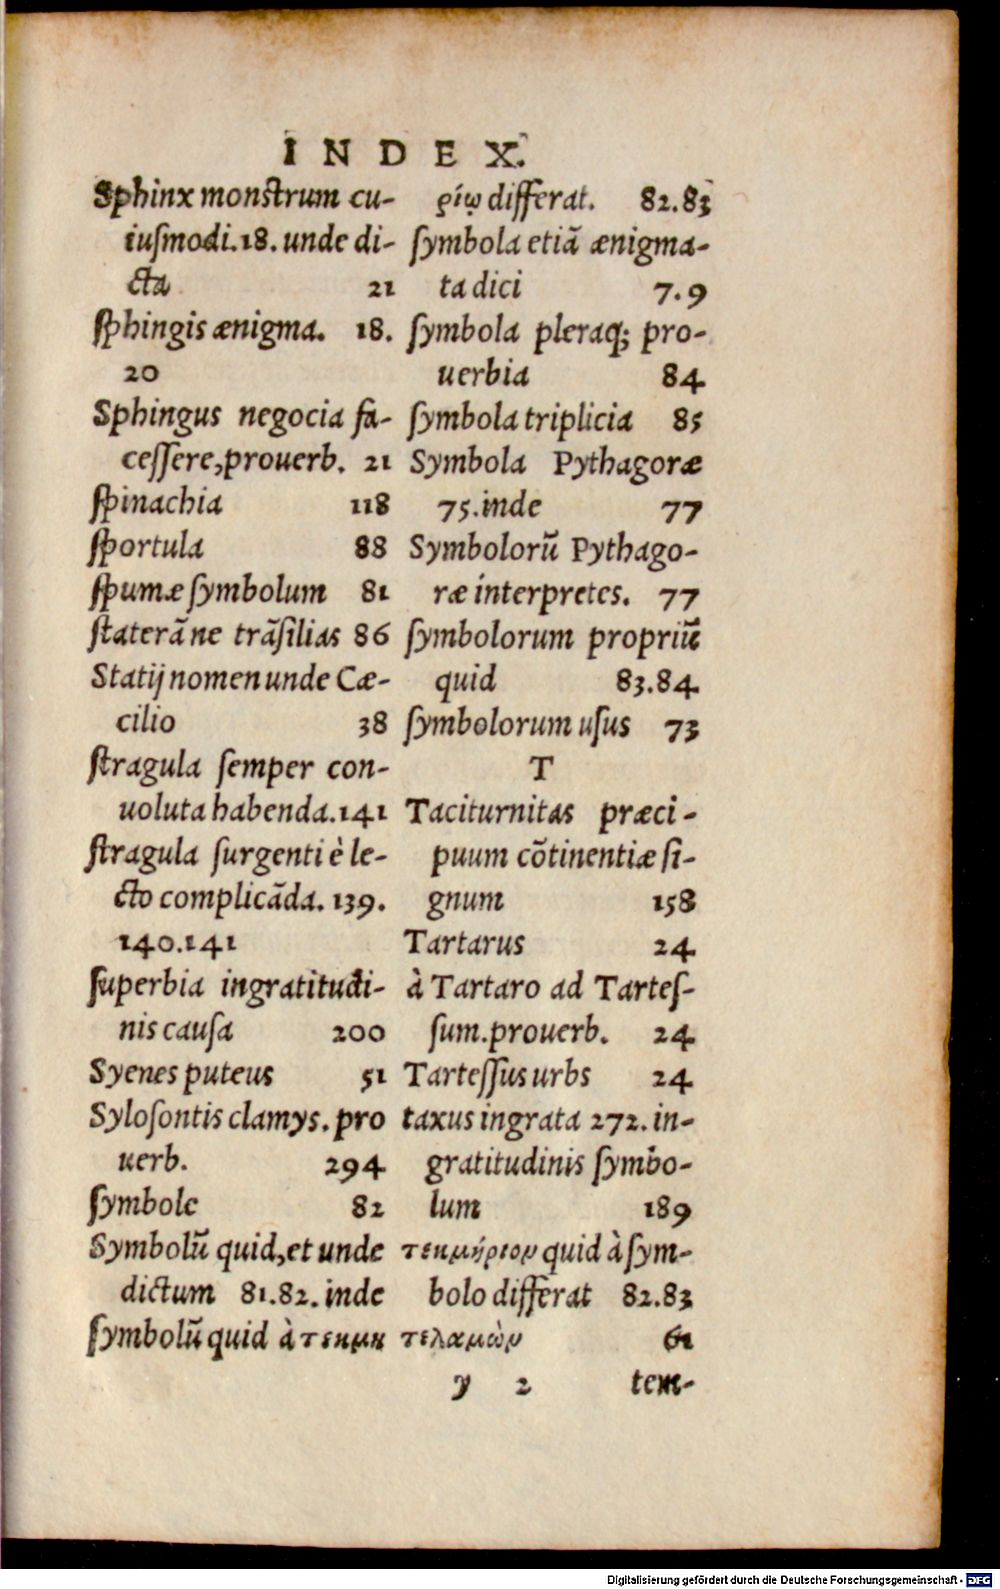 INDEX.
Sphinx monstrum cu-
iusmodi.18. unde di-
cta 21
sphingis ænigma. 18.
20
Sphingus negocia fa-
cessere,prouerb. 21
spinachia 118
sportula 88
spumæ symbolum 81
staterã ne trãsilias 86
Statij nomen unde Cæ-
cilio 38
stragula semper con-
uoluta habenda.141
stragula surgenti è le-
cto complicãda. 139.
140.141
superbia ingratitudi-
nis causa 200
Syenes puteus 51
Sylosontis clamys. pro
uerb. 294
symbole 82
Symbolũ quid,et unde
dictum 81.82. inde
symbolũ quid à τεκμη
ρίῳ differat. 82.83
symbola etiã ænigma-
ta dici 7.9
symbola pleraq; pro-
uerbia 84
symbola triplicia 85
Symbola Pythagoræ
75.inde 77
Symbolorũ Pythago-
ræ interpretes. 77
symbolorum propriũ
quid 83.84
symbolorum usus 73
T
Taciturnitas præci-
puum cõtinentiæ si-
gnum 158
Tartarus 24
à Tartaro ad Tartes-
sum.prouerb. 24
Tartessus urbs 24
taxus ingrata 272. in-
gratitudinis symbo-
lum 189
τεκμήριον quid à sym-
bolo differat 82.83
τελαμὼν 61
y 2 tem-
Digitalisierung gefördert durch die Deutsche Forschungsgemeinschaft - DFG